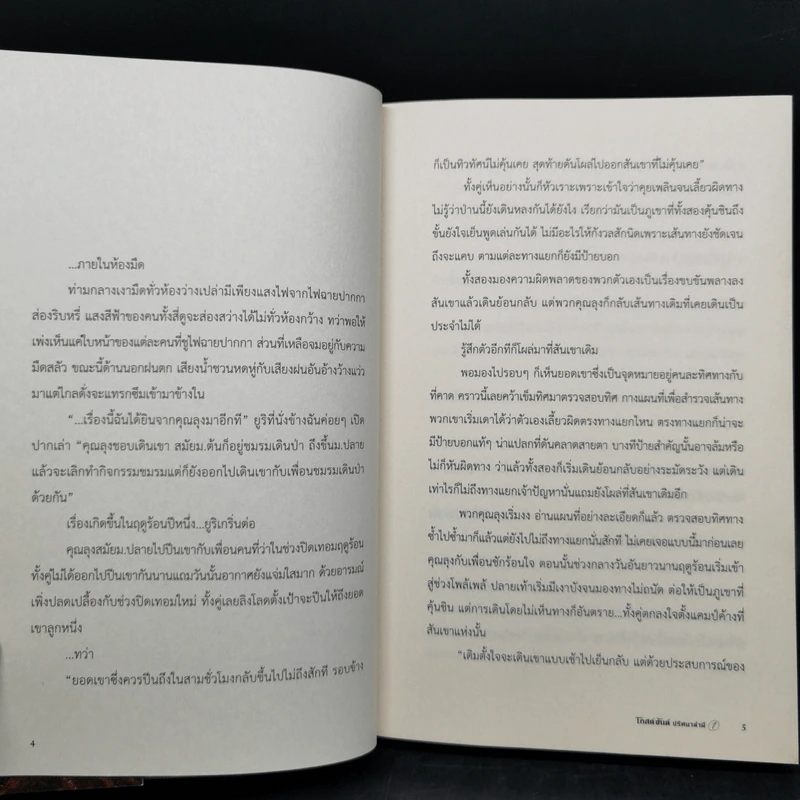 ...ภายในห้องมืด
ท่ามกลางเงามืดทั่วห้องว่างเปล่ามีเพียงแสงไฟจากไฟฉายปากกา
ส่องริบหรี่ แสงสีฟ้าของคนทั้งสี่ดูจะส่องสว่างได้ไม่ทั่วห้องกว้าง ทว่าพอให้
เพ่งเห็นแค่ใบหน้าของแต่ละคนที่ชูไฟฉายปากกา ส่วนที่เหลือจมอยู่กับความ
มืดสลัว ขณะนี้ด้านนอกฝนตก เสียงน้ำชวนหดหู่กับเสียงฝนอันอ้างว้างแว่ว
มาแต่ไกลดั่งจะแทรกซึมเข้ามาข้างใน
“...เรื่องนี้ฉันได้ยินจากคุณลุงมาอีกที” ยูริที่นั่งข้างฉันค่อยๆ เปิด
ปากเล่า “คุณลุงชอบเดินเขา สมัยม.ต้นก็อยู่ชมรมเดินป่า ถึงขึ้นม.ปลาย
แล้วจะเลิกทำกิจกรรมชมรมแต่ก็ยังออกไปเดินเขากับเพื่อนชมรมเดินป่า
ด้วยกัน”
เรื่องเกิดขึ้นในฤดูร้อนปีหนึ่ง...ยูริเกริ่นต่อ
คุณลุงสมัยม.ปลายไปปีนเขากับเพื่อนคนที่ว่าในช่วงปิดเทอมฤดูร้อน
ทั้งคู่ไม่ได้ออกไปปีนเขากันนานแถมวันนั้นอากาศยังแจ่มใสมาก ด้วยอารมณ์
เพิ่งปลดเปลื้องกับช่วงปิดเทอมใหม่ ทั้งคู่เลยลิงโลดตั้งเป้าจะปีนให้ถึงยอด
เขาลูกหนึ่ง
...ทว่า
“ยอดเขาซึ่งควรปีนถึงในสามชั่วโมงกลับขึ้นไปไม่ถึงสักที รอบข้าง
4
ก็เป็นทิวทัศน์ไม่คุ้นเคย สุดท้ายดันโผล่ไปออกสันเขาที่ไม่คุ้นเคย”
ทั้งคู่เห็นอย่างนั้นก็หัวเราะเพราะเข้าใจว่าคุยเพลินจนเลี้ยวผิดทาง
ไม่รู้ว่าป่านนี้ยังเดินหลงกันได้ยังไง เรียกว่ามันเป็นภูเขาที่ทั้งสองคุ้นชินถึง
ขั้นยังใจเย็นพูดเล่นกันได้ ไม่มีอะไรให้กังวลสักนิดเพราะเส้นทางยังชัดเจน
ถึงจะแคบ ตามแต่ละทางแยกก็ยังมีป้ายบอก
ทั้งสองมองความผิดพลาดของพวกตัวเองเป็นเรื่องขบขันพลางลง
สันเขาแล้วเดินย้อนกลับ แต่พวกคุณลุงก็กลับเส้นทางเดิมที่เคยเดินเป็น
ประจำไม่ได้
รู้สึกตัวอีกทีก็โผล่มาที่สันเขาเดิม
พอมองไปรอบๆ ก็เห็นยอดเขาซึ่งเป็นจุดหมายอยู่คนละทิศทางกับ
ที่คาด คราวนี้เลยคว้าเข็มทิศมาตรวจสอบทิศ กางแผนที่เพื่อสำรวจเส้นทาง
พวกเขาเริ่มเดาได้ว่าตัวเองเลี้ยวผิดตรงทางแยกไหน ตรงทางแยกก็น่าจะ
มีป้ายบอกแท้ๆ น่าแปลกที่ดันคลาดสายตา บางทีป้ายสำคัญนั้นอาจล้มหรือ
ไม่ก็หันผิดทาง ว่าแล้วทั้งสองก็เริ่มเดินย้อนกลับอย่างระมัดระวัง แต่เดิน
เท่าไรก็ไม่ถึงทางแยกเจ้าปัญหานั่นแถมยังโผล่ที่สันเขาเดิมอีก
พวกคุณลุงเริ่มงง อ่านแผนที่อย่างละเอียดก็แล้ว ตรวจสอบทิศทาง
ซ้ำไปซ้ำมาก็แล้วแต่ยังไปไม่ถึงทางแยกนั่นสักที ไม่เคยเจอแบบนี้มาก่อนเลย
คุณลุงกับเพื่อนชักร้อนใจ ตอนนั้นช่วงกลางวันอันยาวนานฤดูร้อนเริ่มเข้า
สู่ช่วงโพล้เพล้ ปลายเท้าเริ่มมีเงาบังจนมองทางไม่ถนัด ต่อให้เป็นภูเขาที่
คุ้นชิน แต่การเดินโดยไม่เห็นทางก็อันตราย...ทั้งคู่ตกลงใจตั้งแคมป์ค้างที่
สันเขาแห่งนั้น
“เดิมตั้งใจจะเดินเขาแบบเช้าไปเย็นกลับ แต่ด้วยประสบการณ์ของ
โกสต์ฮันต์ ปริศนาล่าผี 1 5